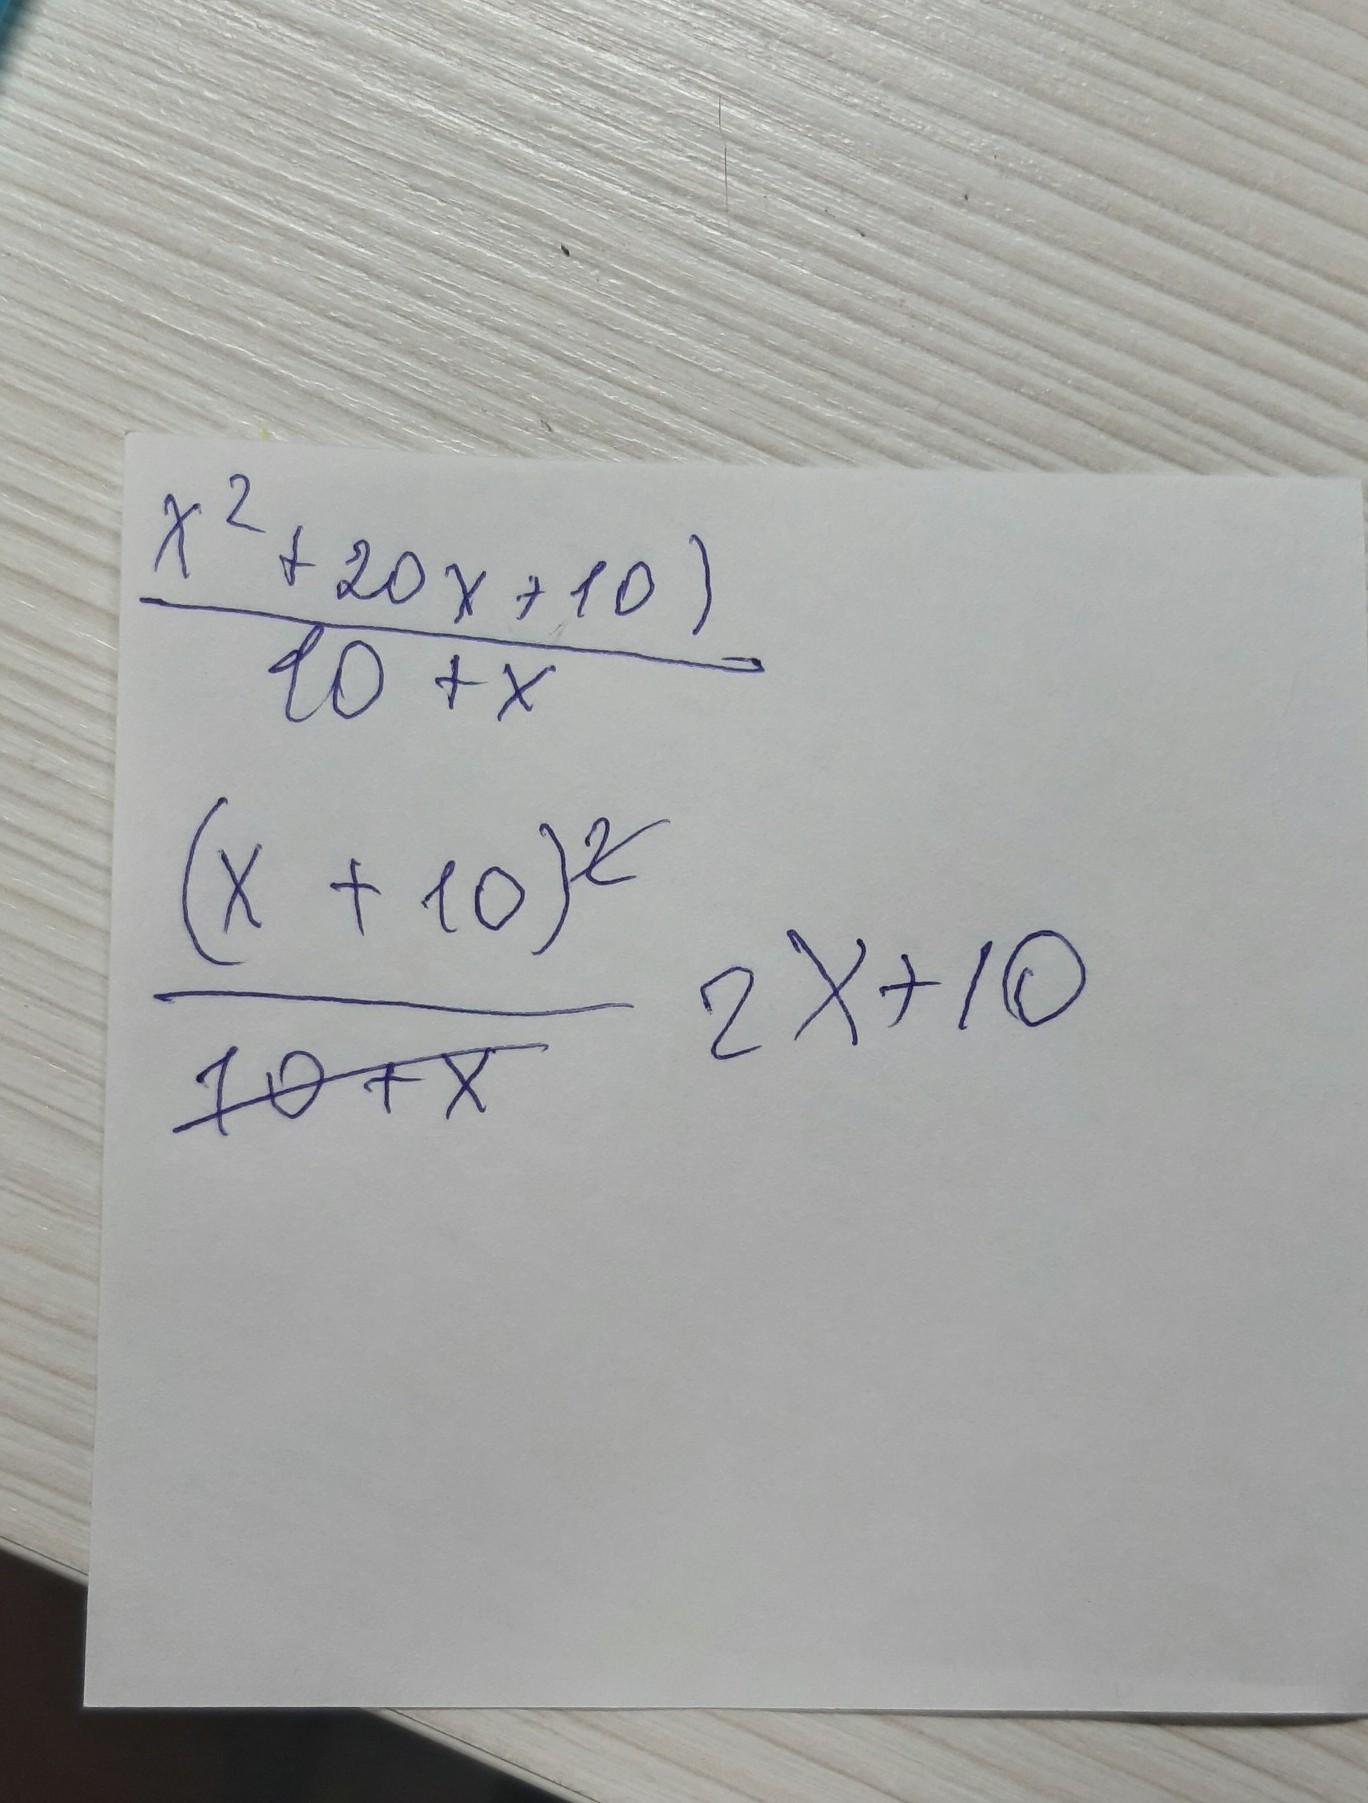 x² + 20x + 10)
10 + x
(x + 10)²
10 + x
2x + 10